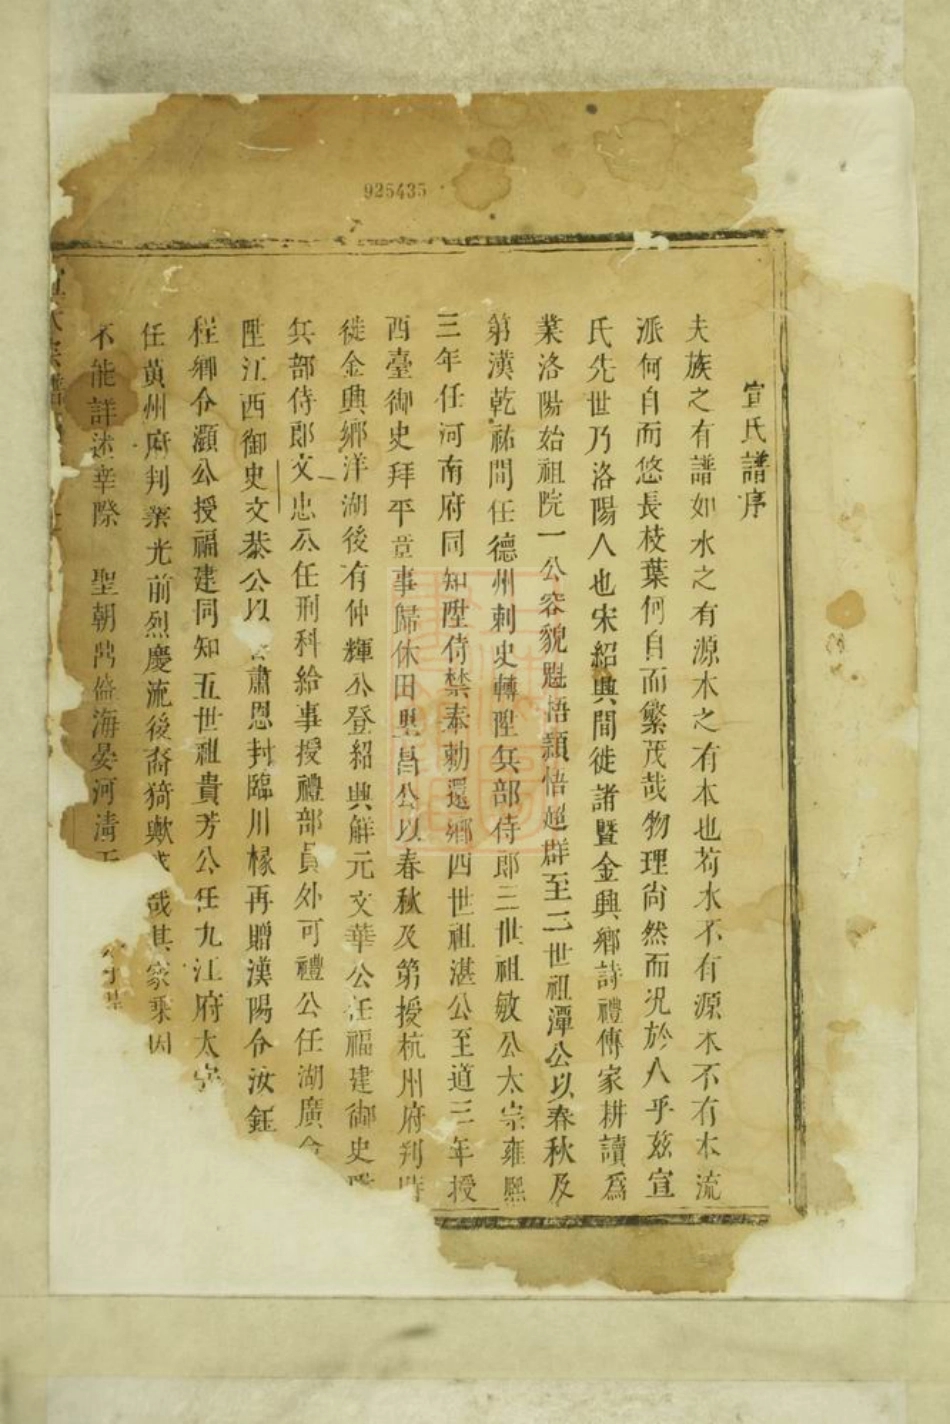 925435
宣氏譜序
夫族之有譜如水之有源木之有本也苟水不有源木不有本流
派何自而悠長枝葉何自而繁茂哉物理尚然而况於人乎兹宣
氏先世乃洛陽人也宋紹興間徙諸暨金興鄉詩禮傳家耕讀爲
業洛陽始祖院一公容貌魁梧穎悟超群至二世祖潭公以春秋及
第漢乾祐間任德州刺史轉陞兵部侍郎三世祖敏公太宗雍熙
三年任河南府同知陞侍禁奉勅還鄉四世祖湛公至道三年授
西臺御史拜平章事歸休田里昌公以春秋及第授杭州府判
徙金興鄉洋湖後有仲輝公登紹興解元文華公任福建御史
兵部侍郎文忠公任刑科給事授禮部員外可禮公任湖廣
陞江西御史文恭公以 肅恩封臨川椽再贈漢陽令汝鈺
程鄉令灝公授福建同知五世祖貴芳公任九江府太
任黄州府判業光前烈慶流後裔猗歟 哉其家乘因
不能詳述幸際 聖朝 海晏河清